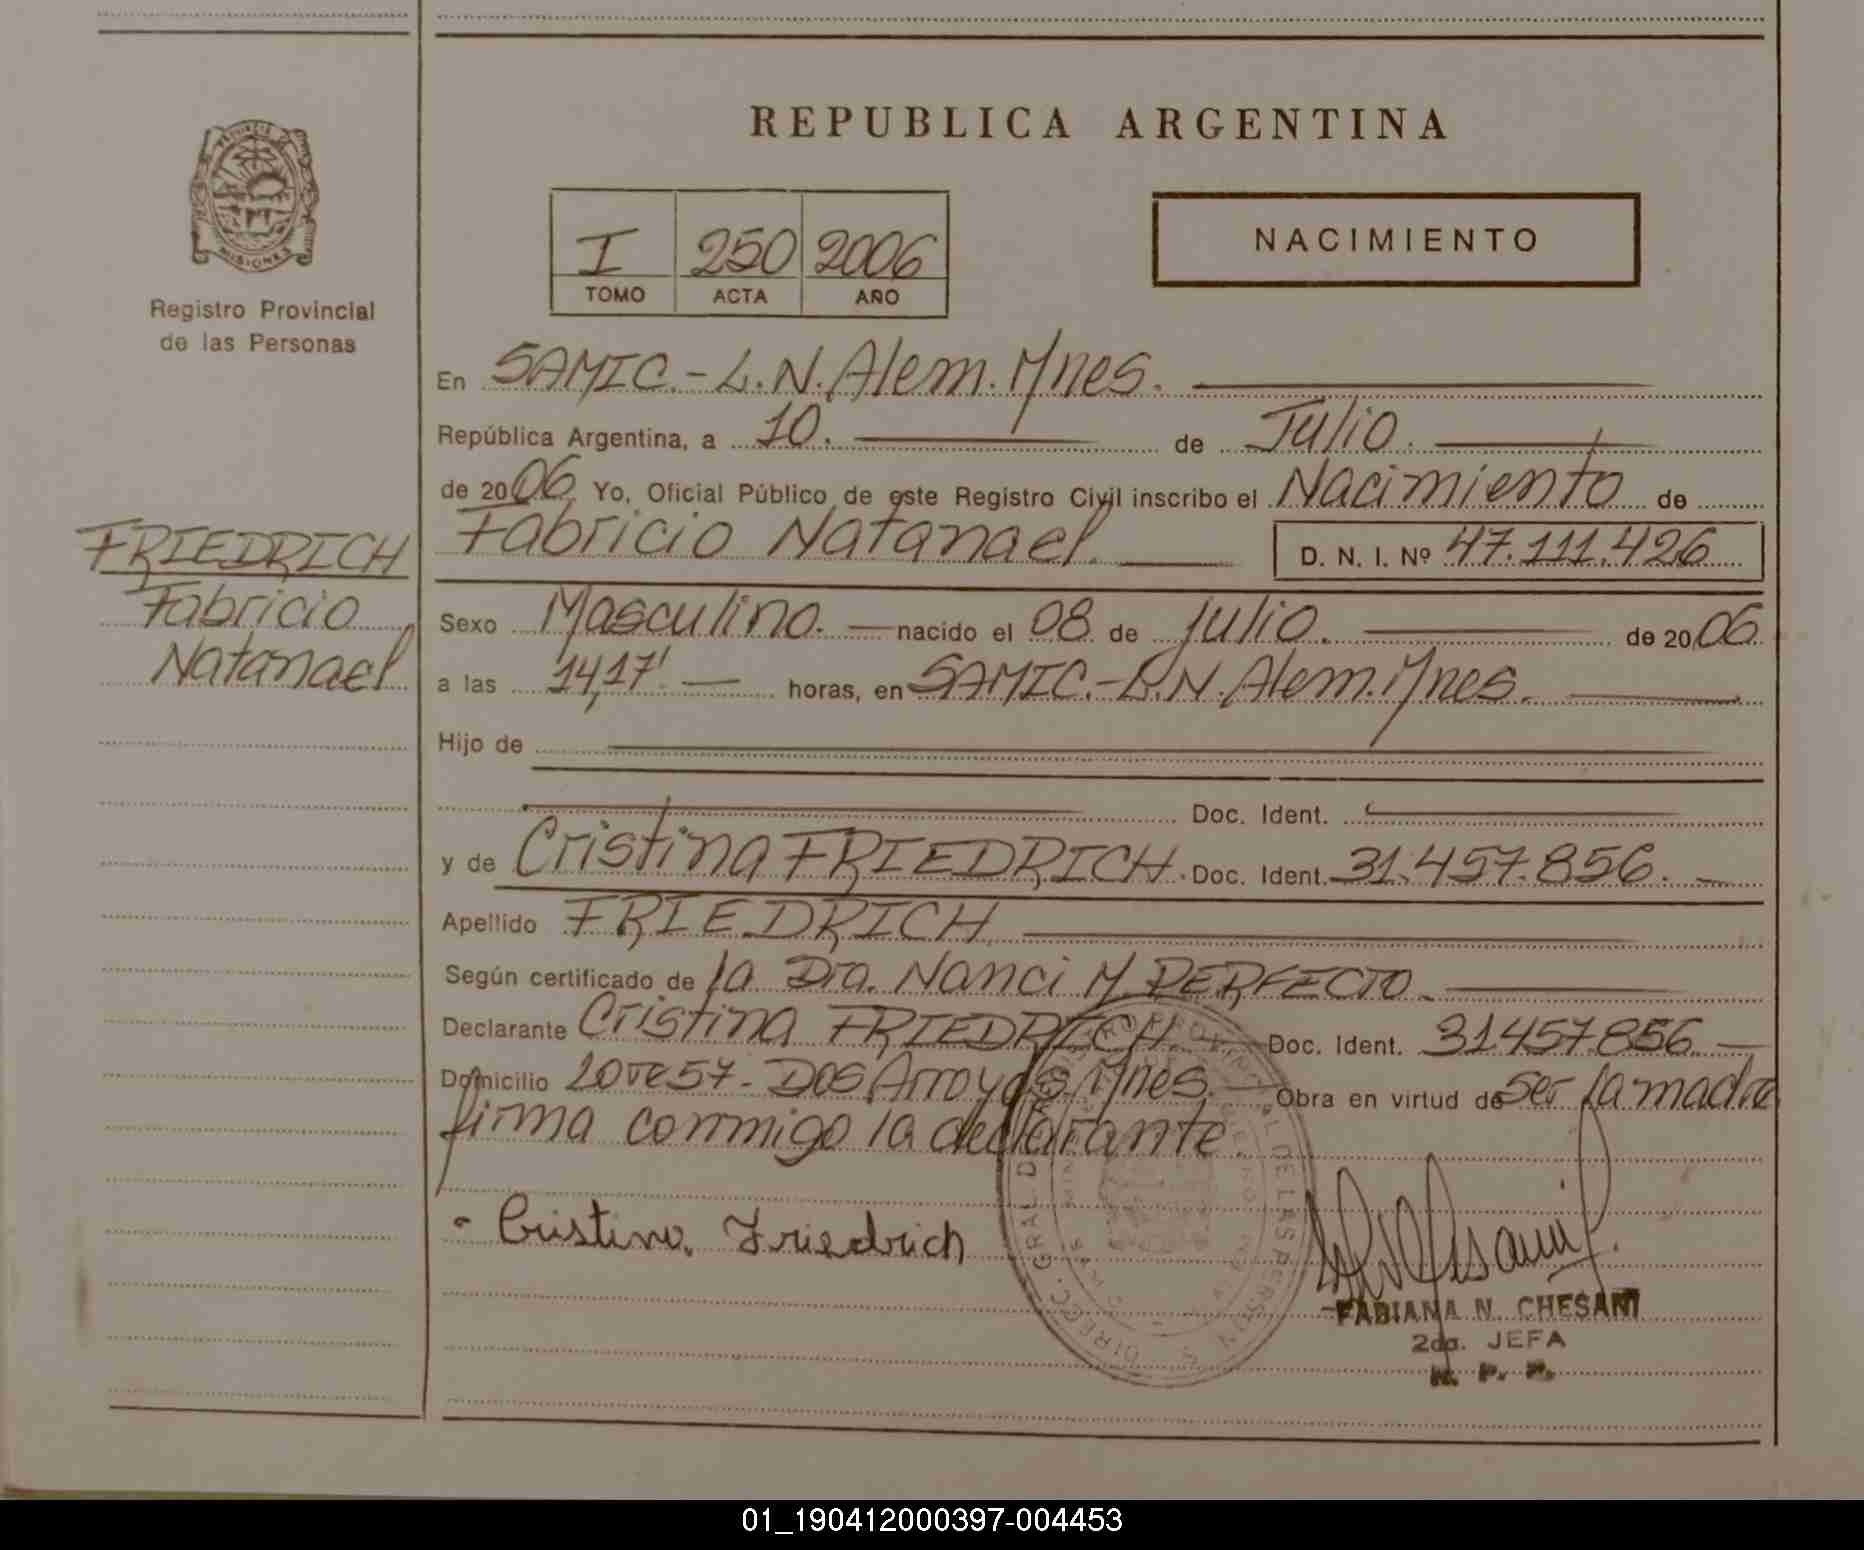 REPUBLICA ARGENTINA
PROVINCIA DE
MISIONES
Registro Provincial
de las Personas
I 250 2006
TOMO ACTA AÑO
NACIMIENTO
En SAMIC.- L.N. Alem. Mnes.
República Argentina, a 10. de Julio.
de 2006 Yo, Oficial Público de este Registro Civil inscribo el Nacimiento de
Fabricio Natanael. D. N. I. Nº 47.111.426
FRIEDRICH
Fabricio
Natanael
Sexo Masculino. nacido el 08 de julio. de 2006
a las 14,17' horas, en SAMIC.- L.N. Alem. Mnes.
Hijo de
Doc. Ident.
y de Cristina FRIEDRICH. Doc. Ident. 31.457.856.
Apellido FRIEDRICH
Según certificado de la Dra. Nanci M PERFECTO
Declarante Cristina FRIEDRICH Doc. Ident. 31457.856
Domicilio Lote 57- Dos Arroyos. Mnes. Obra en virtud de ser la madre
firma conmigo la declarante.
Cristina Friedrich
FABIANA N. CHESANI
2da. JEFA
R. P. P.
01_190412000397-004453